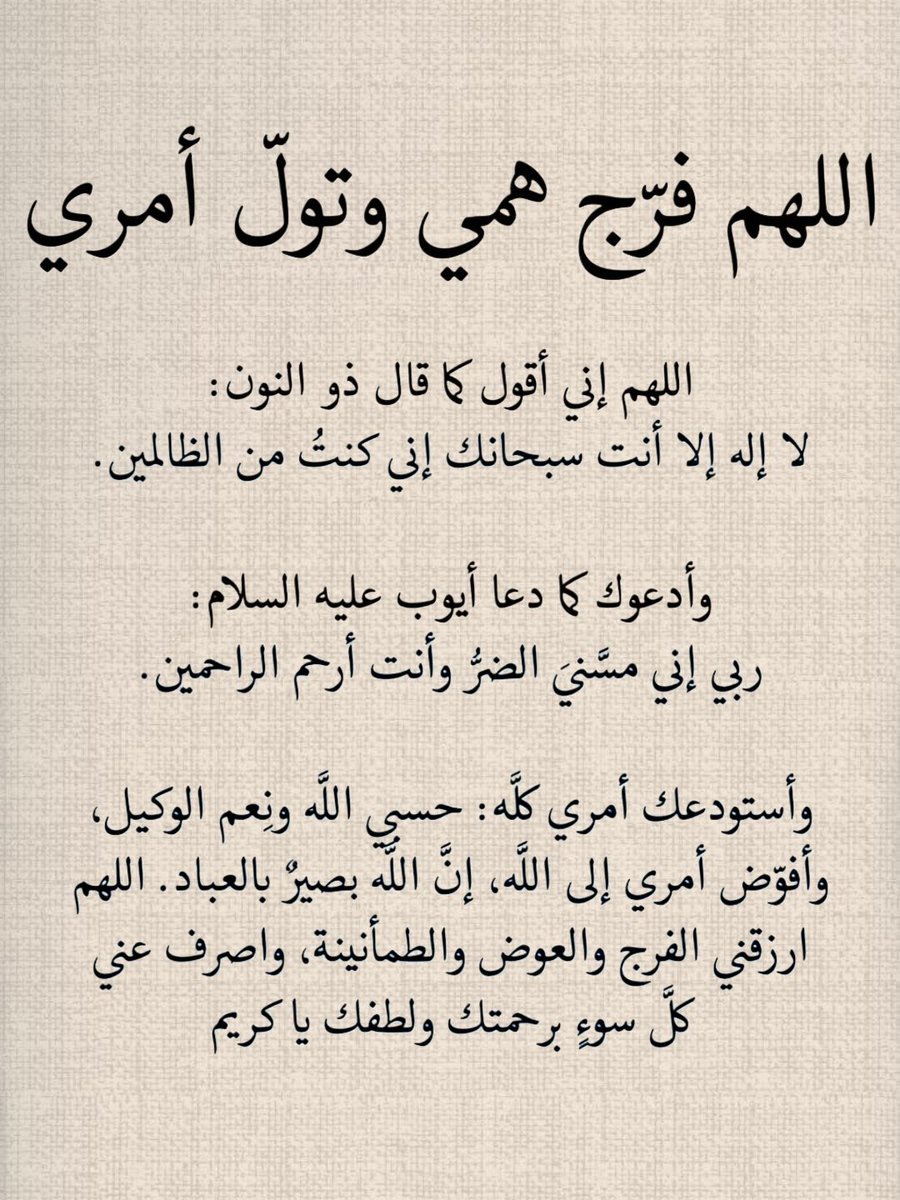 اللهم فرّج همي وتولّ أمري
اللهم إني أقول كما قال ذو النون:
لا إله إلا أنت سبحانك إني كنتُ من الظالمين.
وأدعوك كما دعا أيوب عليه السلام:
ربي إني مسَّنيَ الضرُّ وأنت أرحم الراحمين.
وأستودعك أمري كلَّه: حسبي اللَّه ونِعم الوكيل،
وأفوّض أمري إلى اللَّه، إنَّ اللَّه بصيرٌ بالعباد. اللهم
ارزقني الفرج والعوض والطمأنينة، واصرف عني
كلَّ سوءٍ برحمتك ولطفك يا كريم